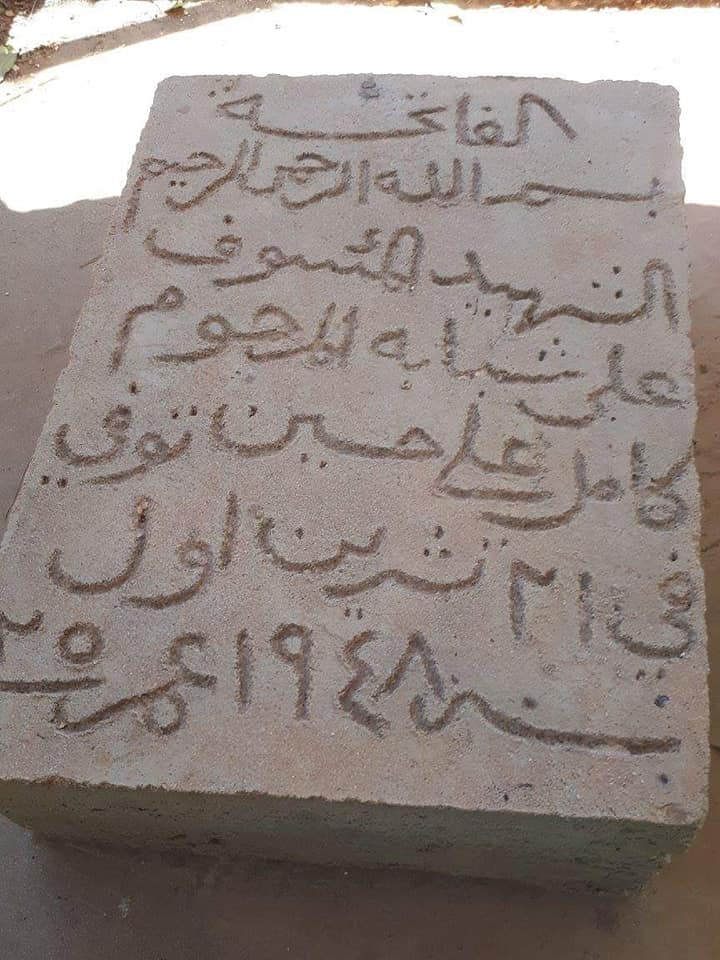 الفاتحة
بسم الله الرحمن الرحيم
الشهيد المئسوف
على شبابه المرحوم
كامل علي حسين توفي
في ٢١ تشرين اول
سنة ١٩٤٨ عمر ٢٥